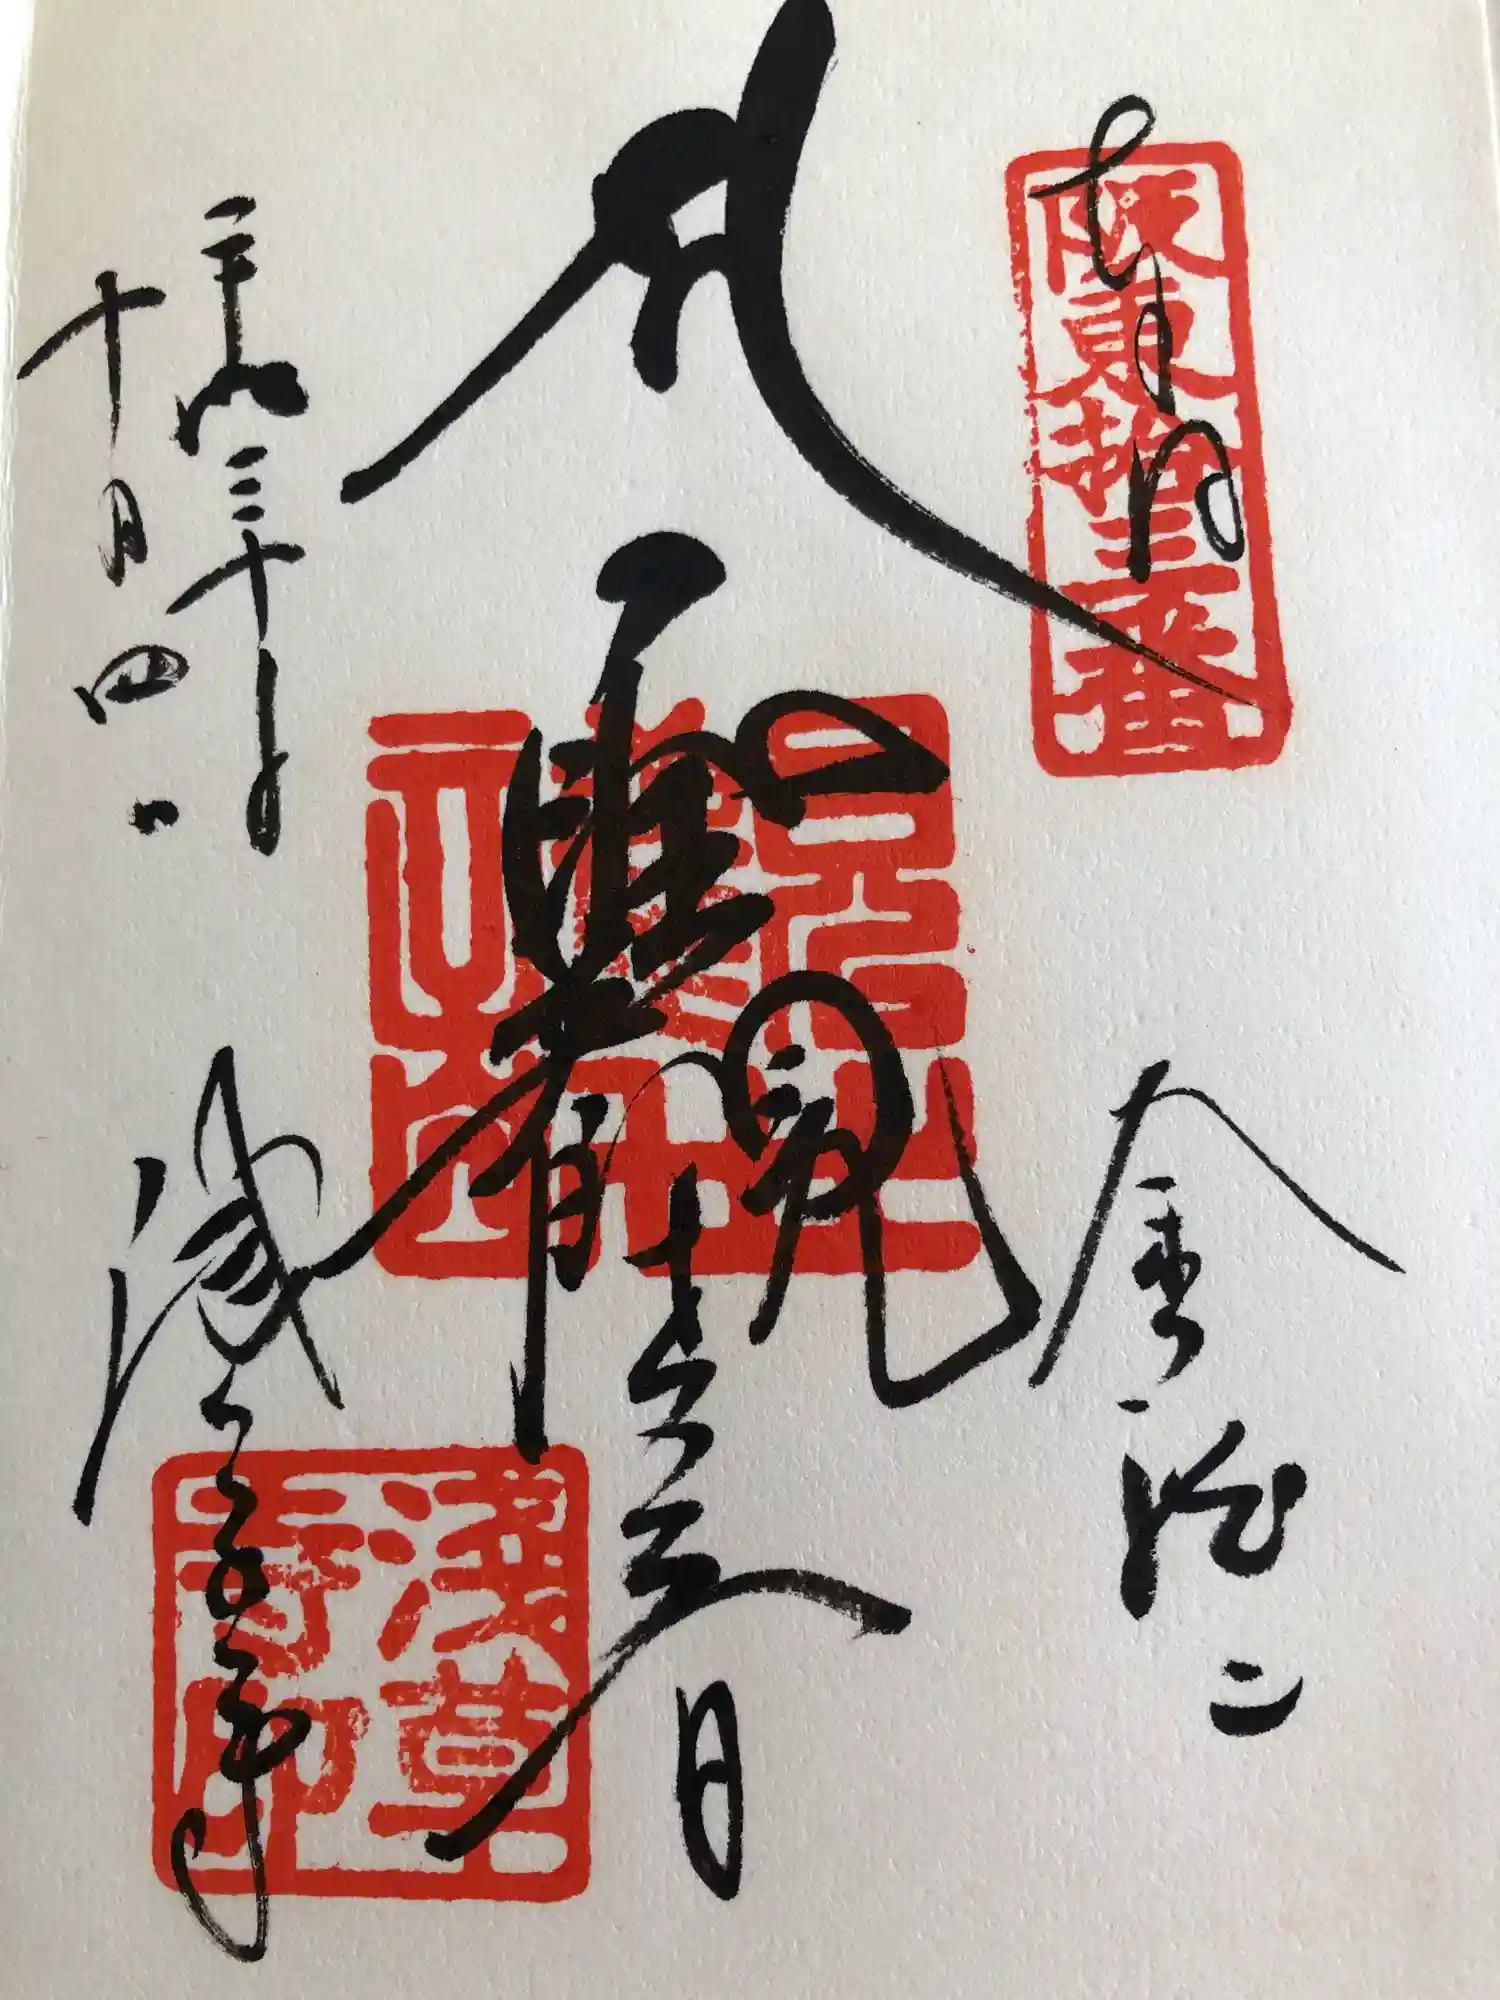 奉拝
阪東拾三番
金龍山
聖觀世音
平成三十年
十月四日
浅草寺
浅草寺印